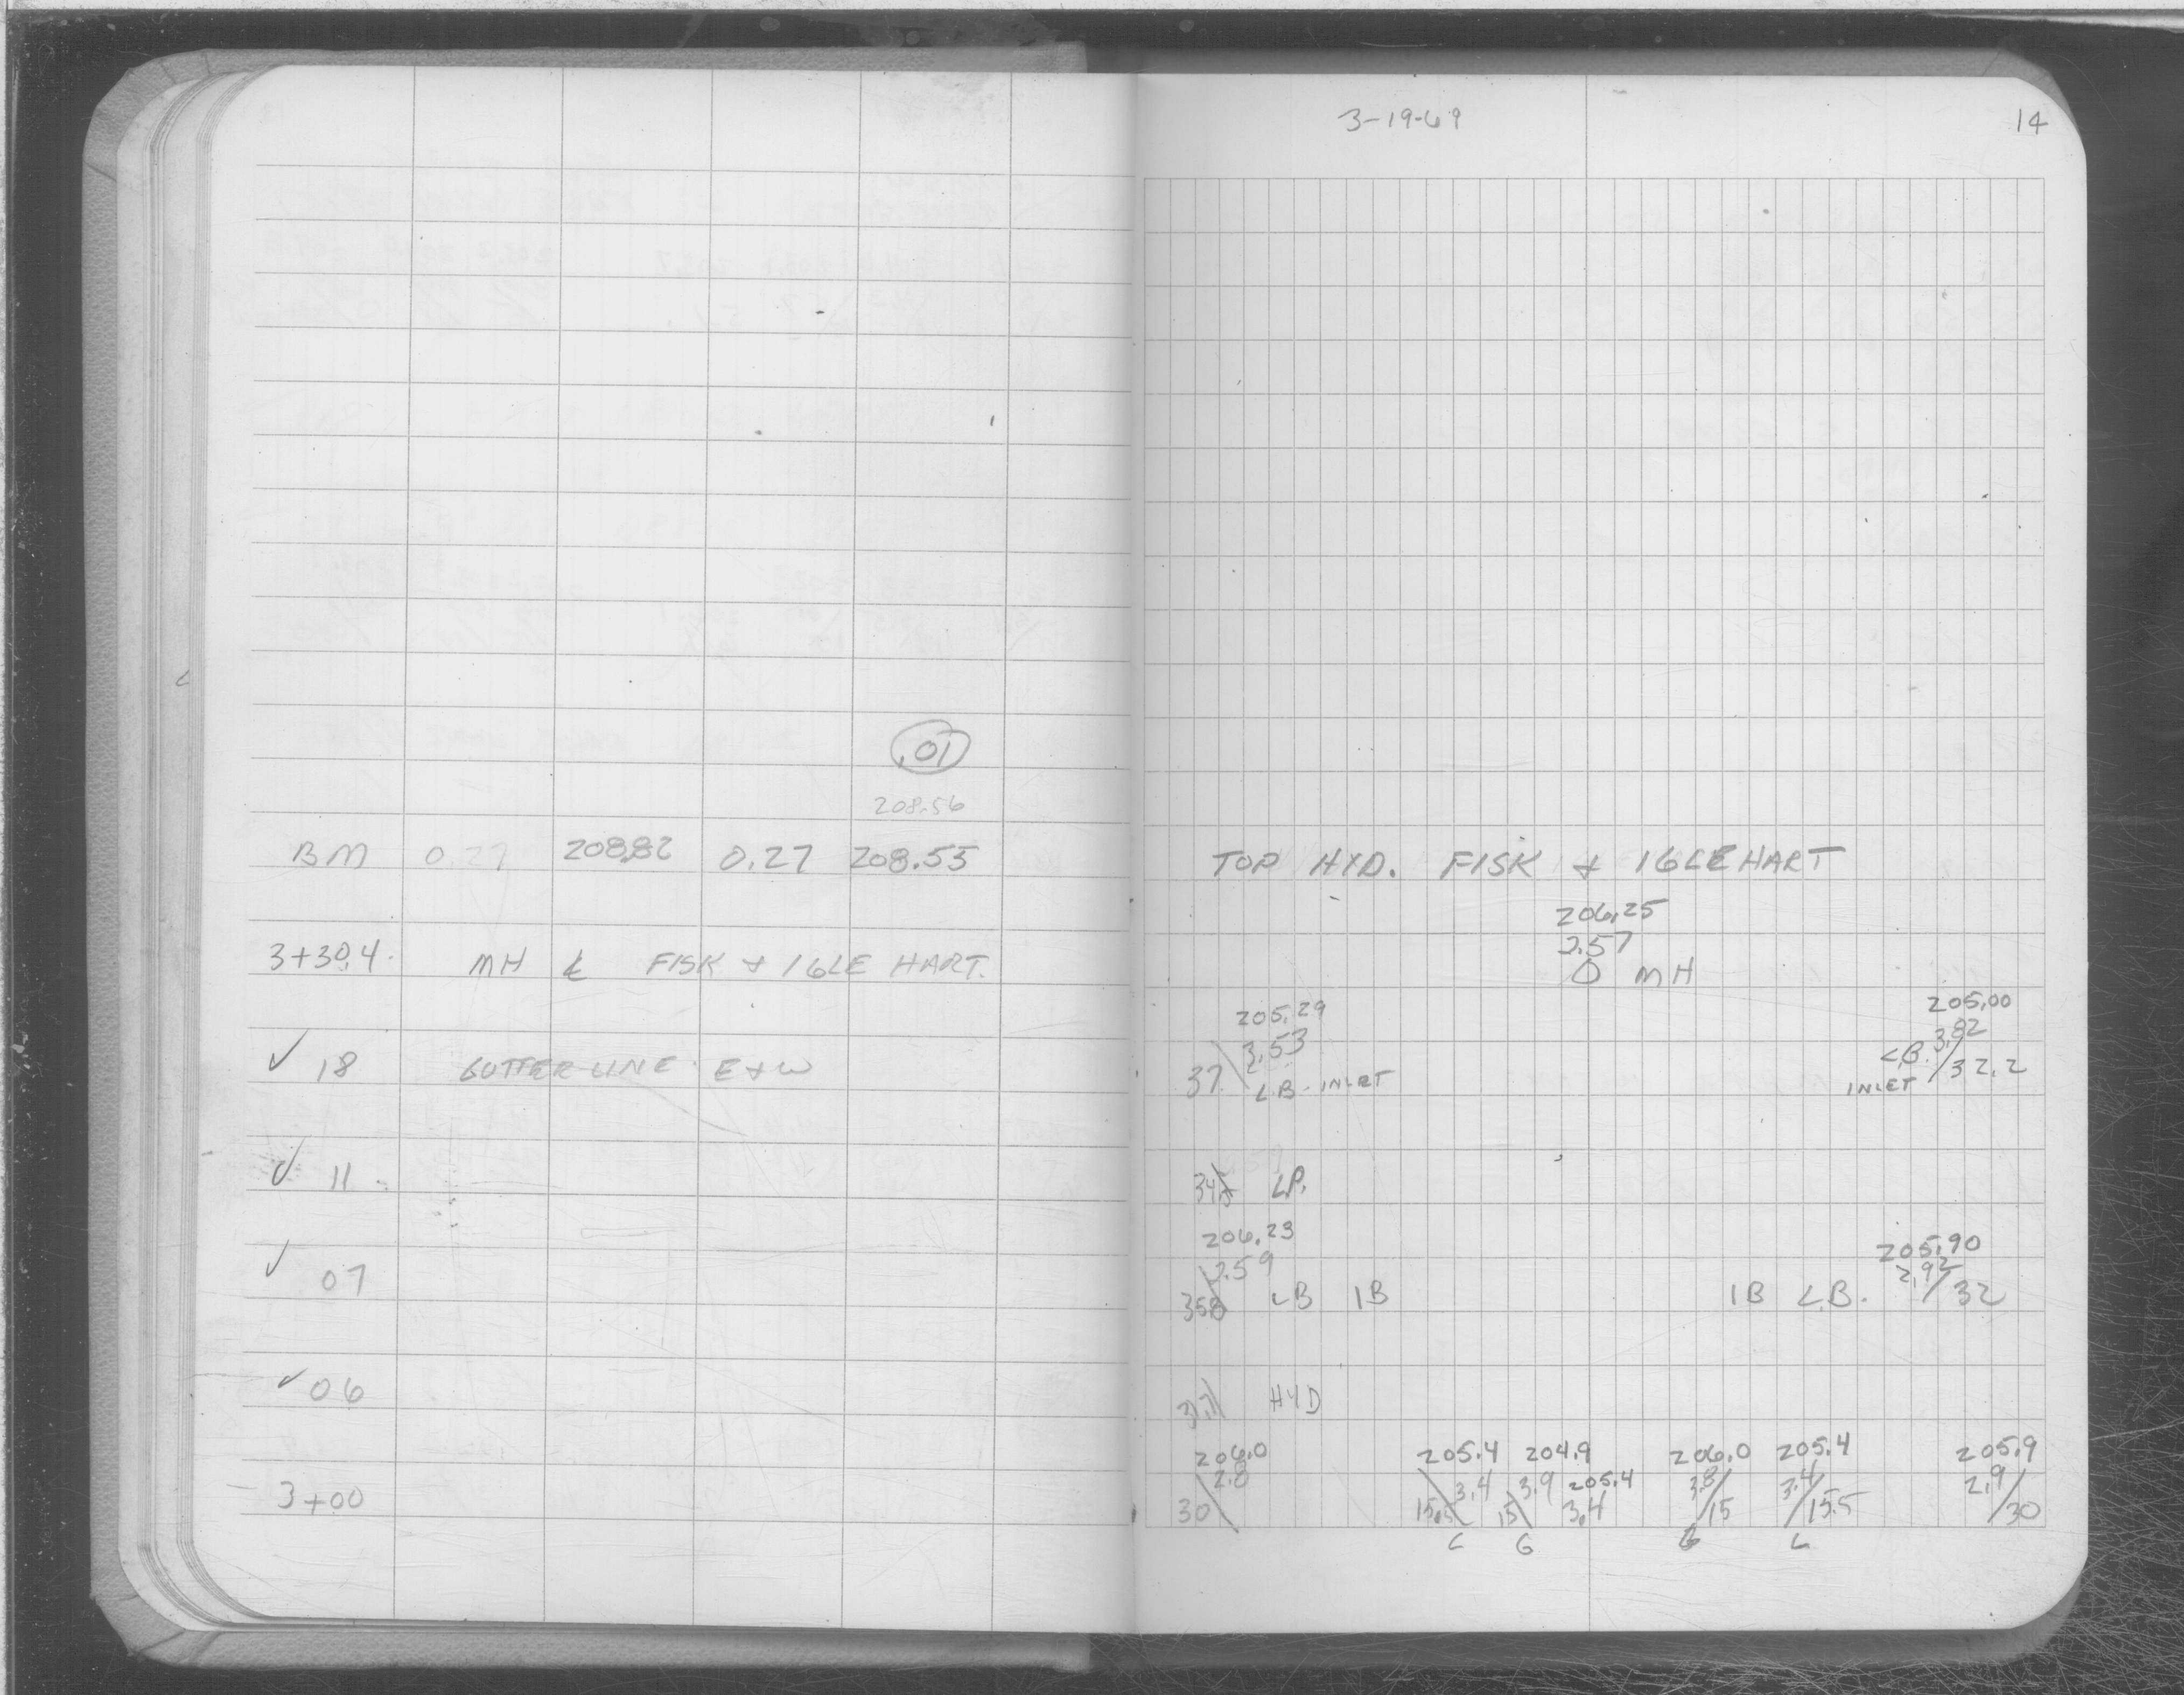 3-19-69
14
.01
208.56
BM 0.27 208.82 0.27 208.55 TOP HYD. FISK & IGLEHART
206.25
2.57
3+30.4 MH ℄ FISK & IGLE HART. 0 MH
205.29 205.00
3.53 3.82
✓ 18 GUTTER LINE E & W 37 C.B. INLET C.B. INLET 32.2
✓ 11 34.5 L.P.
206.23 205.90
2.59 2.92
✓ 07 35.8 CB IB IB C.B. 32
✓ 06 HYD
206.0 205.4 204.9 206.0 205.4 205.9
2.8 3.4 3.9 205.4 3.8 3.4 2.9
3+00 30 15.5 15 3.4 15 15.5 30
C G G C